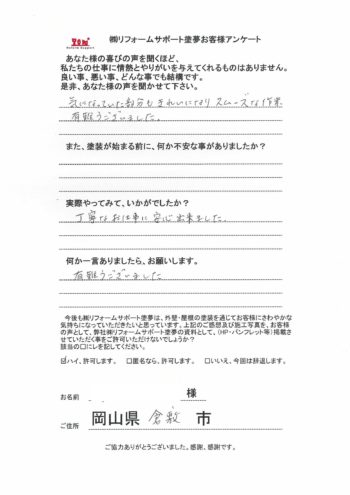 ㈱リフォームサポート塗夢お客様アンケート
あなた様の喜びの声を聞くほど、
私たちの仕事に情熱とやりがいを与えてくれるものはありません。
良い事、悪い事、どんな事でも結構です。
是非、あなた様の声を聞かせて下さい。
気になっていた部分もきれいになり スムーズな作業
有難うございました。
また、塗装が始まる前に、何か不安な事がありましたか？
実際やってみて、いかがでしたか？
丁寧なお仕事に安心出来ました。
何か一言ありましたら、お願いします。
有難うございました
今後も㈱リフォームサポート塗夢は、外壁・屋根の塗装を通してお客様にさわやかな
気持ちになっていただきたいと思っています。上記のご感想及び施工写真を、お客様
の声として、弊社㈱リフォームサポート塗夢の資料として、（HP・パンフレット等）掲載さ
せていただく事をご許可いただけないでしょうか？
該当の□にレを記してください。
☑ハイ、許可します。 □匿名なら、許可します。 □いいえ、今回は辞退します。
お名前 様
ご住所 岡山県 倉敷 市
ご協力ありがとうございました。感謝、感謝です。